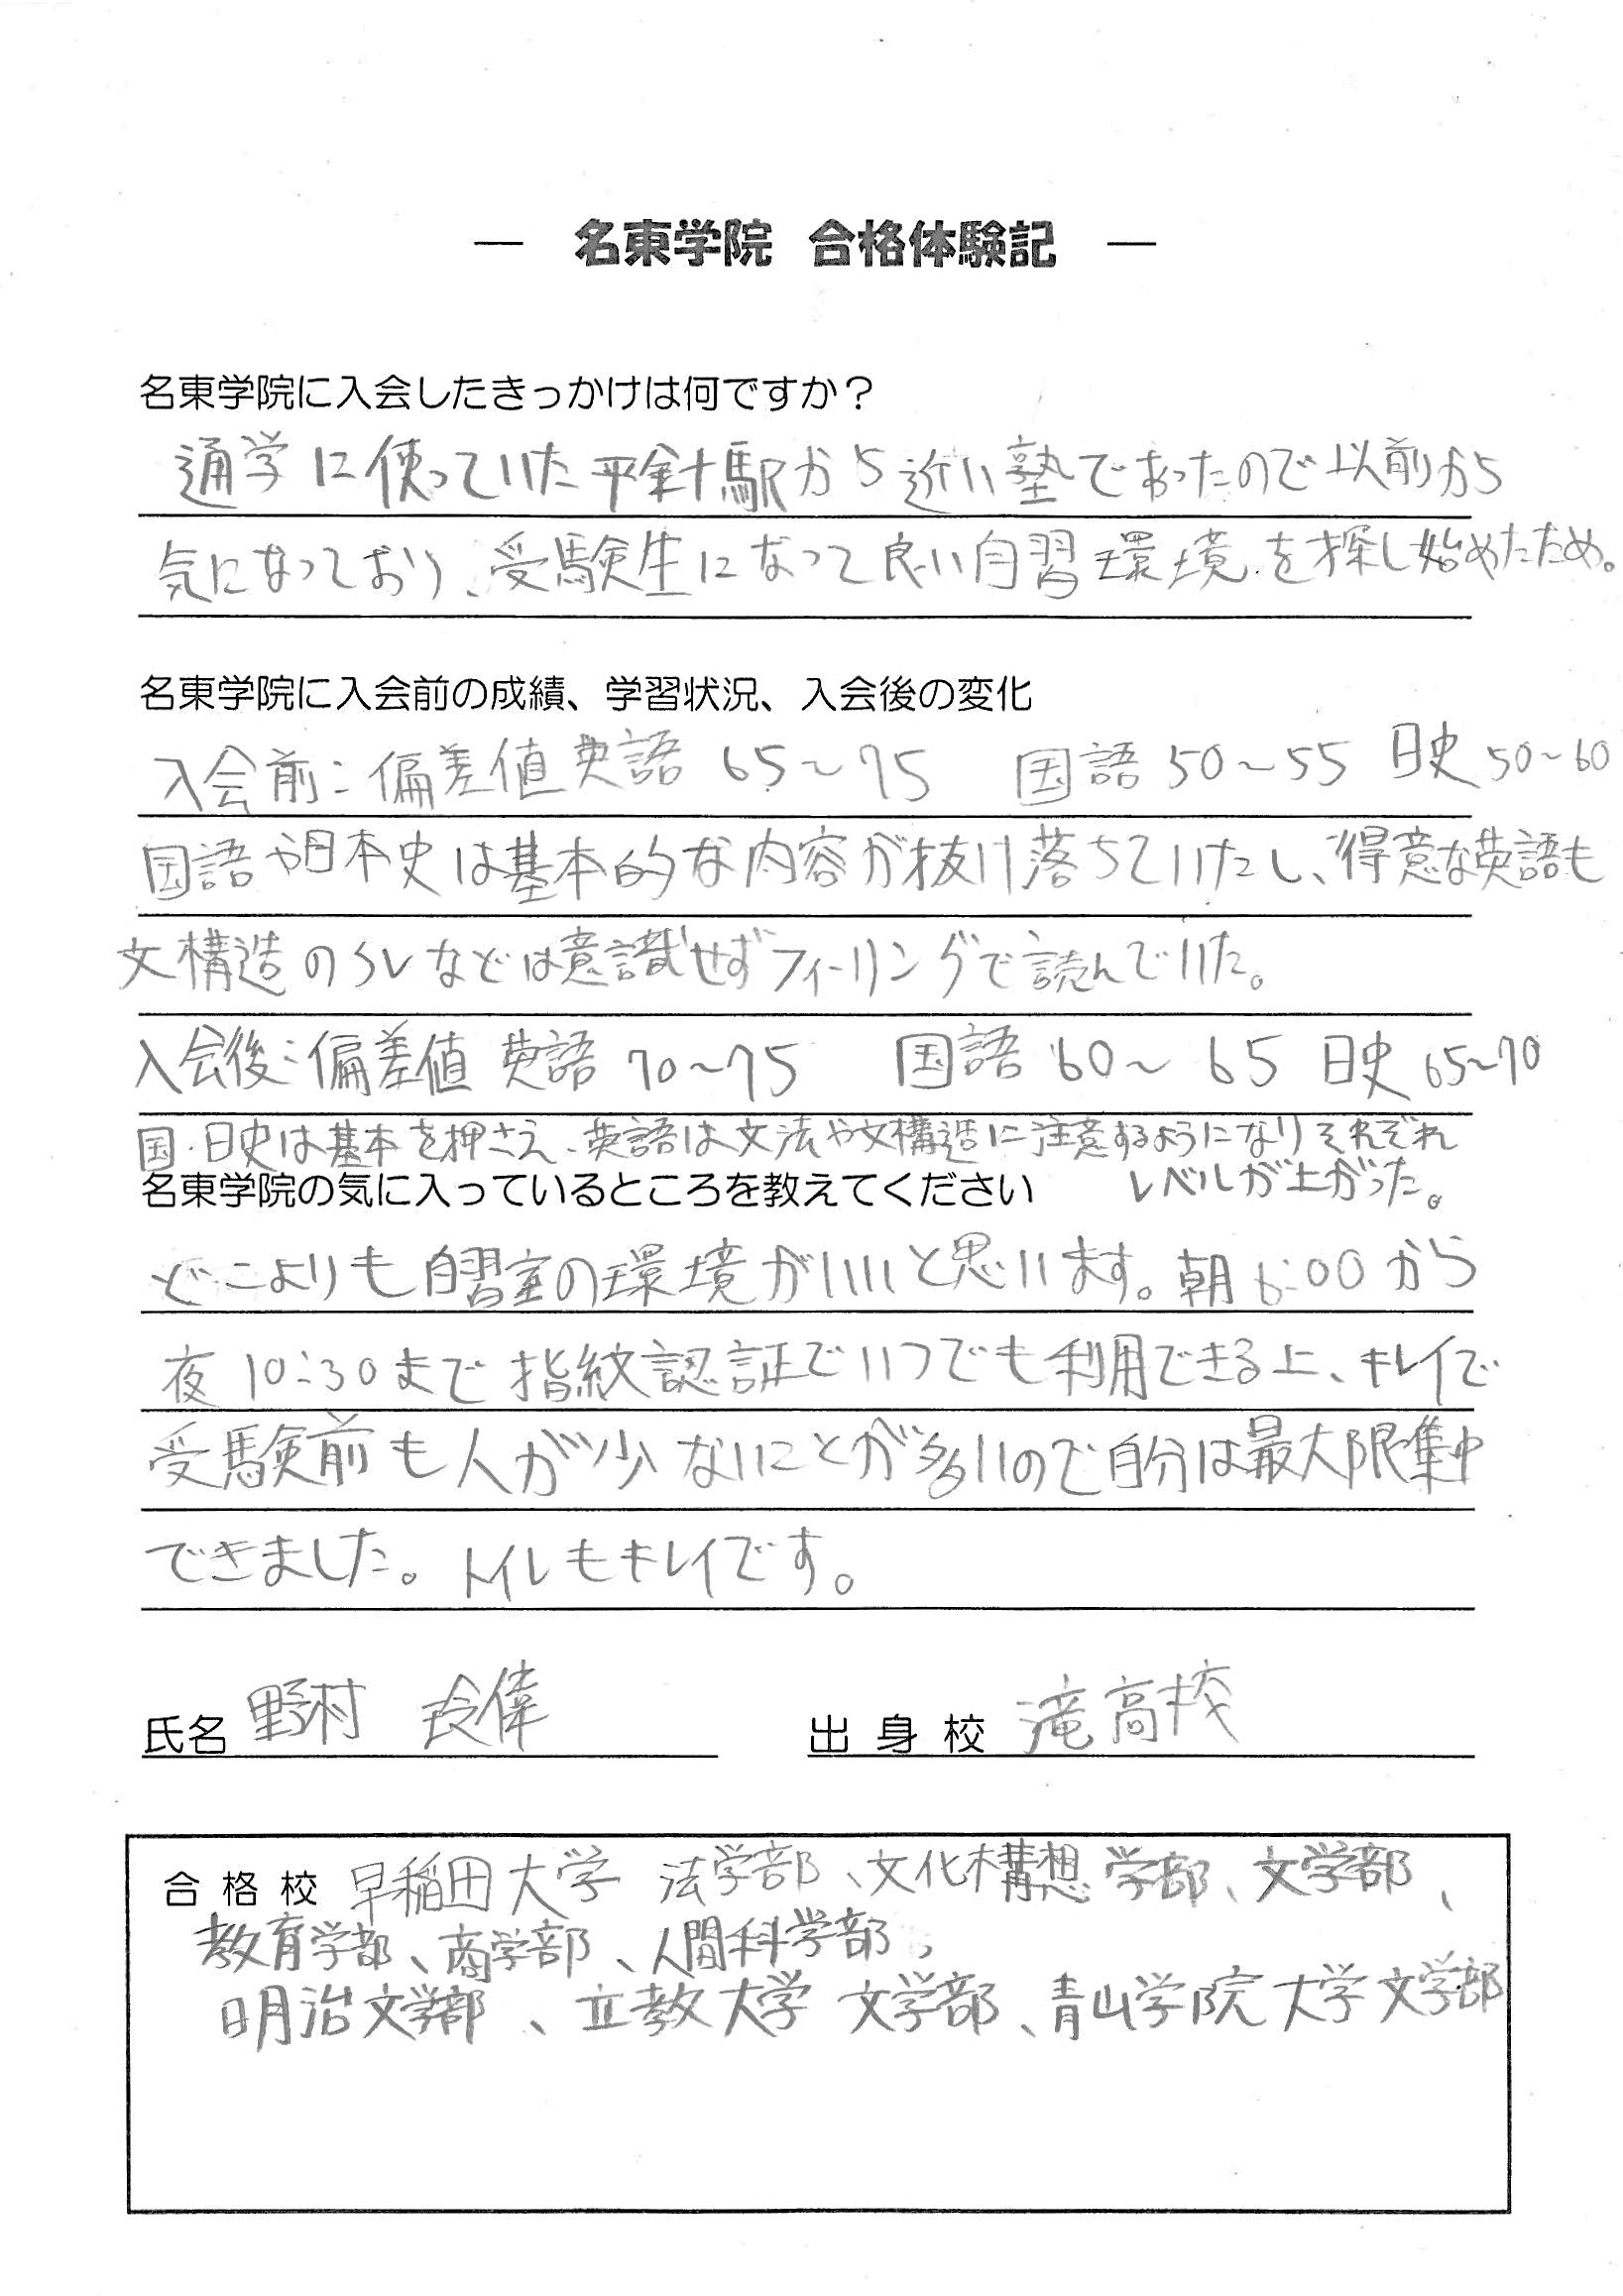 ― 名東学院 合格体験記 ―
名東学院に入会したきっかけは何ですか？
通学に使っていた平針駅から近い塾であったので以前から
気になっており、受験生になって良い自習環境を探し始めたため。
名東学院に入会前の成績、学習状況、入会後の変化
入会前：偏差値 英語 65～75 国語 50～55 日史 50～60
国語や日本史は基本的な内容が抜け落ちていたし、得意な英語も
文構造のSVなどは意識せずフィーリングで読んでいた。
入会後：偏差値 英語 70～75 国語 60～65 日史 65～70
国・日史は基本を押さえ、英語は文法や文構造に注意するようになりそれぞれ
レベルが上がった。
名東学院の気に入っているところを教えてください
どこよりも自習室の環境がいいと思います。朝6:00から
夜10:30まで指紋認証でいつでも利用できる上、キレイで
受験前も人が少ないことが多いので自分は最大限集中
できました。トイレもキレイです。
氏名 野村 玲偉 出身校 滝高校
合格校 早稲田大学 法学部、文化構想学部、文学部、
教育学部、商学部、人間科学部、
明治文学部、立教大学 文学部、青山学院大学文学部